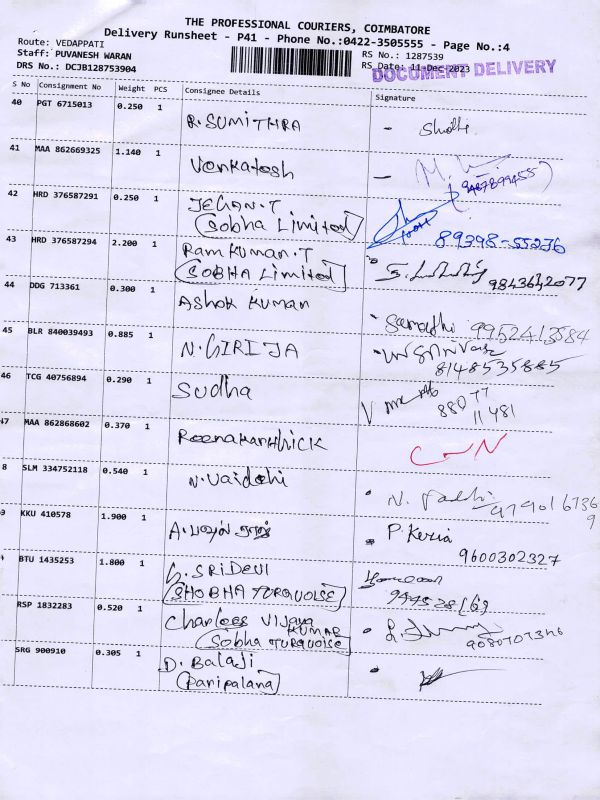 THE PROFESSIONAL COURIERS, COIMBATORE
Delivery Runsheet - P41 - Phone No.:0422-3505555 - Page No.:4
Route: VEDAPPATI
RS No.: 1287539
Staff: PUVANESH WARAN
RS Date: 11-Dec-2023
DRS No.: DCJB128753904
DOCUMENT DELIVERY
S No Consignment No Weight PCS Consignee Details Signature
40 PGT 6715013 0.250 1
R.SUMITHRA
41 MAA 862669325 1.140 1
Venkatesh
9487899455
42 HRD 376587291 0.250 1
JEGAN.T
(Sobha Limited)
89398-55236
43 HRD 376587294 2.200 1
Ramkuman.T
(SOBHA Limited)
9843642077
44 DDG 713361 0.300 1
Ashok Kuman
9952413584
45 BLR 840039493 0.885 1
N.GIRIJA
8148535885
46 TCG 40756894 0.290 1
Sudha
88077
11481
47 MAA 862868602 0.370 1
Reenakarthick
8 SLM 334752118 0.540 1
N.Vaidehi
N.
9 KKU 410578 1.900 1
A.
P.Kezia
9600302327
BTU 1435253 1.800 1
G.SRIDEVI
(SHOBHA TURQUOISE)
RSP 1832283 0.520 1
Charles VIJAYA
KUMAR
(Sobha TURQUOISE)
SRG 900910 0.305 1
D.Balaji
(Panipalana)